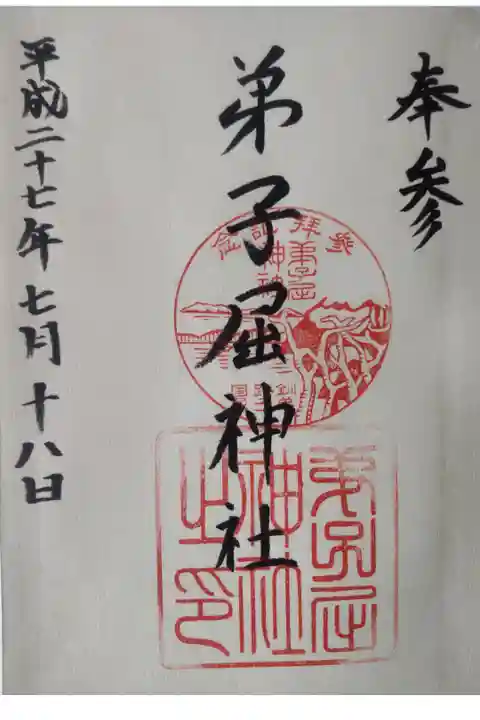 奉参
弟子屈神社
平成二十七年七月十八日
参拝記念
弟子屈神社
弟子屈神社之印